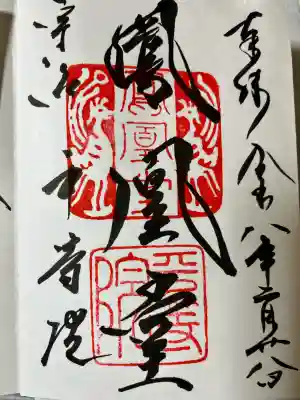 奉拝 令和八年二月廿八日
鳳凰堂
鳳凰堂
平等院印
宇治 平等院